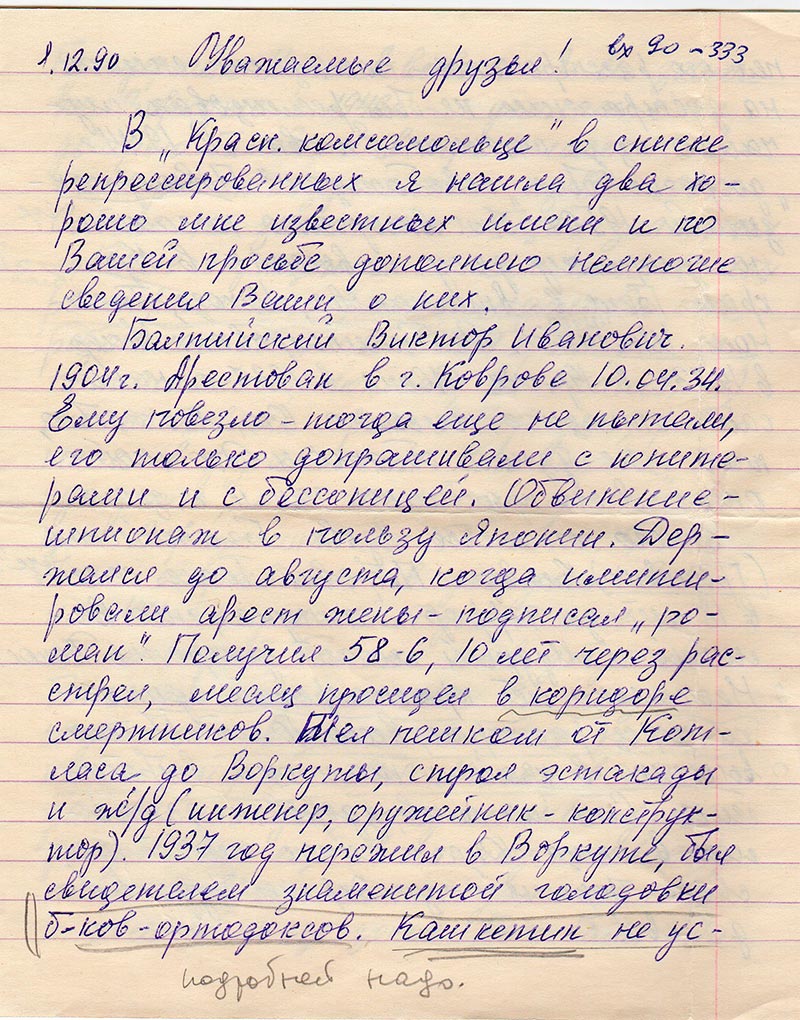 1.12.90 Уважаемые друзья! вх 90-333
В „Красн. комсомольце" в списке
репрессированных я нашла два хо-
рошо мне известных имени и по
Вашей просьбе дополняю немногие
сведения Ваши о них.
Балтийский Виктор Иванович.
1904г. Арестован в г. Коврове 10.04.34.
Ему повезло - тогда еще не пытали,
его только допрашивали с юпите-
рами и с бессоницей. Обвинение -
шпионаж в пользу Японии. Дер-
жался до августа, когда имити-
ровали арест жены - подписал „ро-
ман". Получил 58-6, 10 лет через рас-
стрел, месяц просидел в коридоре
смертников. Шел пешком от Кот-
ласа до Воркуты, строя эстакады
и ж/д (инженер, оружейник-конструк-
тор). 1937 год пережил в Воркуте, был
свидетелем знаменитой голодовки
б-ков-ортодоксов. Кашкетин не ус-
подробней надо.